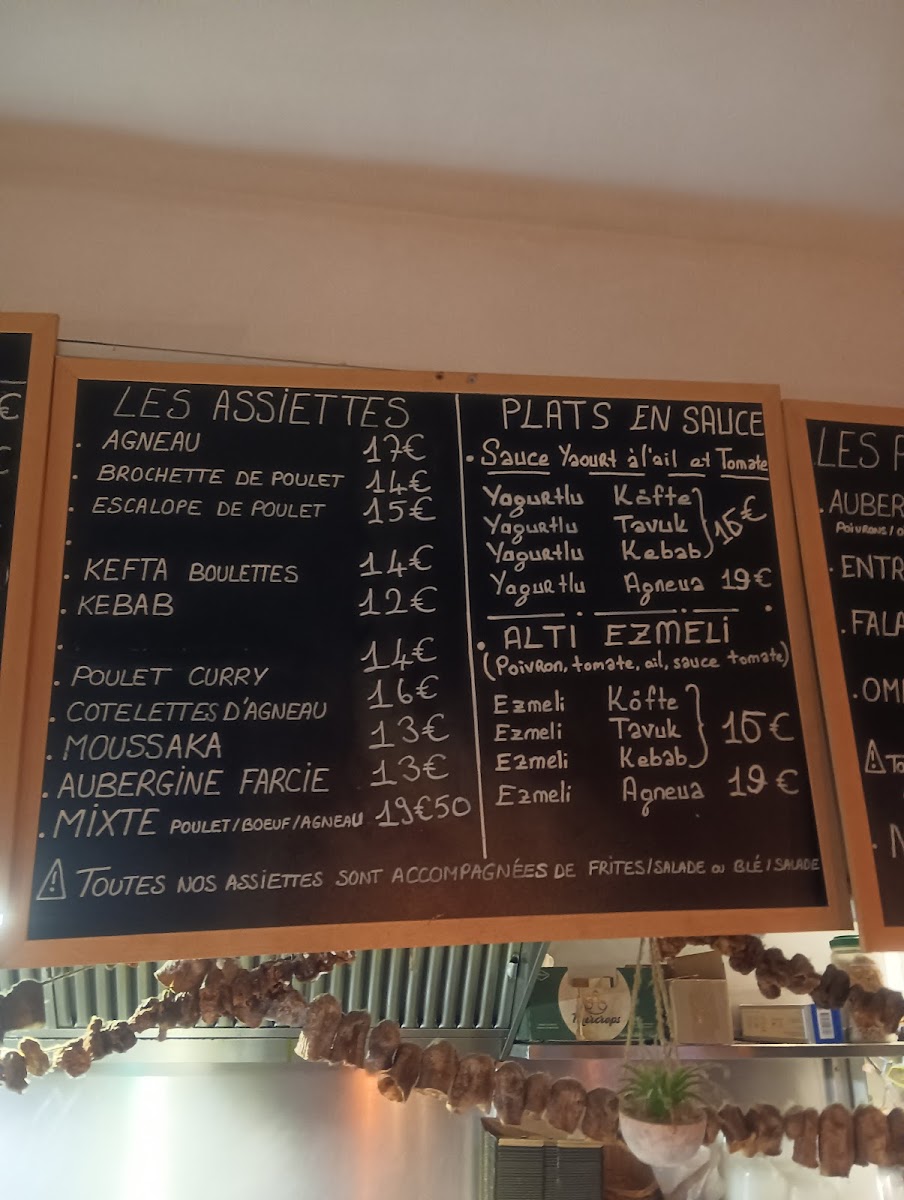 €
€
LES ASSIETTES
. AGNEAU 17€
. BROCHETTE DE POULET 14€
. ESCALOPE DE POULET 15€
.
. KEFTA BOULETTES 14€
. KEBAB 12€
.
. POULET CURRY 14€
. COTELETTES D'AGNEAU 16€
. MOUSSAKA 13€
. AUBERGINE FARCIE 13€
. MIXTE POULET/BOEUF/AGNEAU 19€50
PLATS EN SAUCE
. Sauce Yaourt à l'ail et Tomate
Yagurtlu Köfte
Yagurtlu Tavuk 15€
Yagurtlu Kebab
Yagurtlu Agneua 19€
. ALTI EZMELI
(Poivron, tomate, ail, sauce tomate)
Ezmeli Köfte
Ezmeli Tavuk 15€
Ezmeli Kebab
Ezmeli Agneua 19€
⚠ TOUTES NOS ASSIETTES SONT ACCOMPAGNÉES DE FRITES/SALADE OU BLÉ/SALADE
LES P
. AUBER
POIVRONS/
. ENTR
. FALA
. OM
⚠ TO